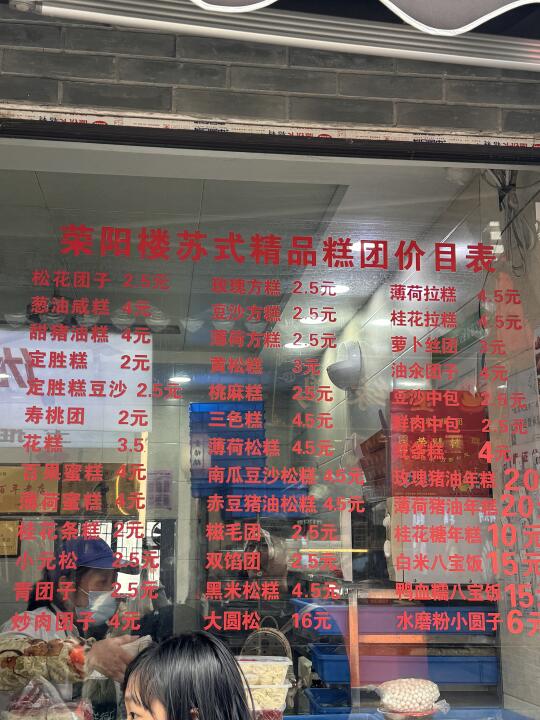 荣阳楼苏式精品糕团价目表
松花团子 2.5元
葱油咸糕 4元
甜猪油糕 4元
定胜糕 2元
定胜糕豆沙 2.5元
寿桃团 2元
花糕 3.5
百果蜜糕 4元
薄荷蜜糕 4元
桂花条糕 2元
小元松 2.5元
青团子 2.5元
炒肉团子 4元
玫瑰方糕 2.5元
豆沙方糕 2.5元
薄荷方糕 2.5元
黄松糕 3元
桃麻糕 2.5元
三色糕 4.5元
薄荷松糕 4.5元
南瓜豆沙松糕 4.5元
赤豆猪油松糕 4.5元
糍毛团 2.5元
双馅团 2.5元
黑米松糕 4.5元
大圆松 16元
薄荷拉糕 4.5元
桂花拉糕 4.5元
萝卜丝团 3元
油汆团子 4元
豆沙中包 2.5元
鲜肉中包 2.5元
条糕 4元
玫瑰猪油年糕 20
薄荷猪油年糕 20
桂花糖年糕 10元
白米八宝饭 15元
鸭血糯八宝饭 15
水磨粉小圆子 6元